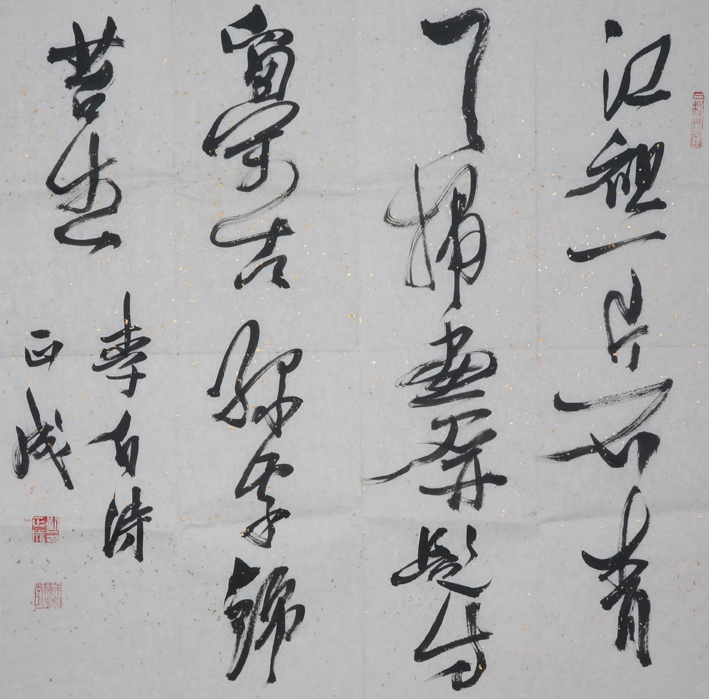 江祖一片石青
天掃畫屏題詩
留萬古綠字錦
苔生
李白詩
正成